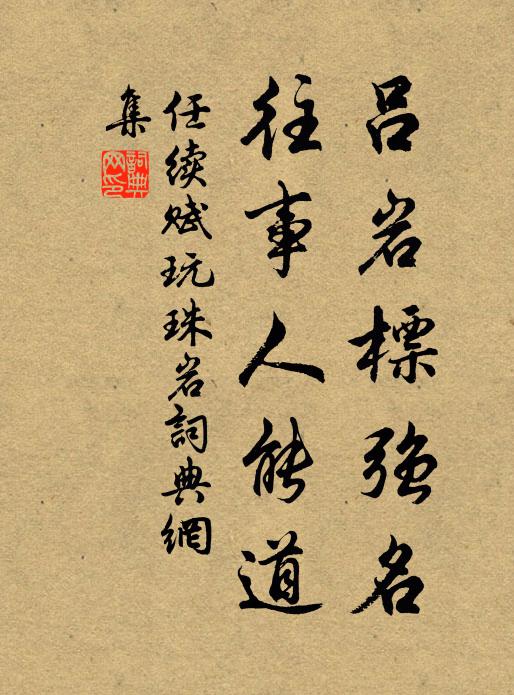 吕岩標強名
往事人能道
任续赋玩珠岩詞典網
集
詞典
网印